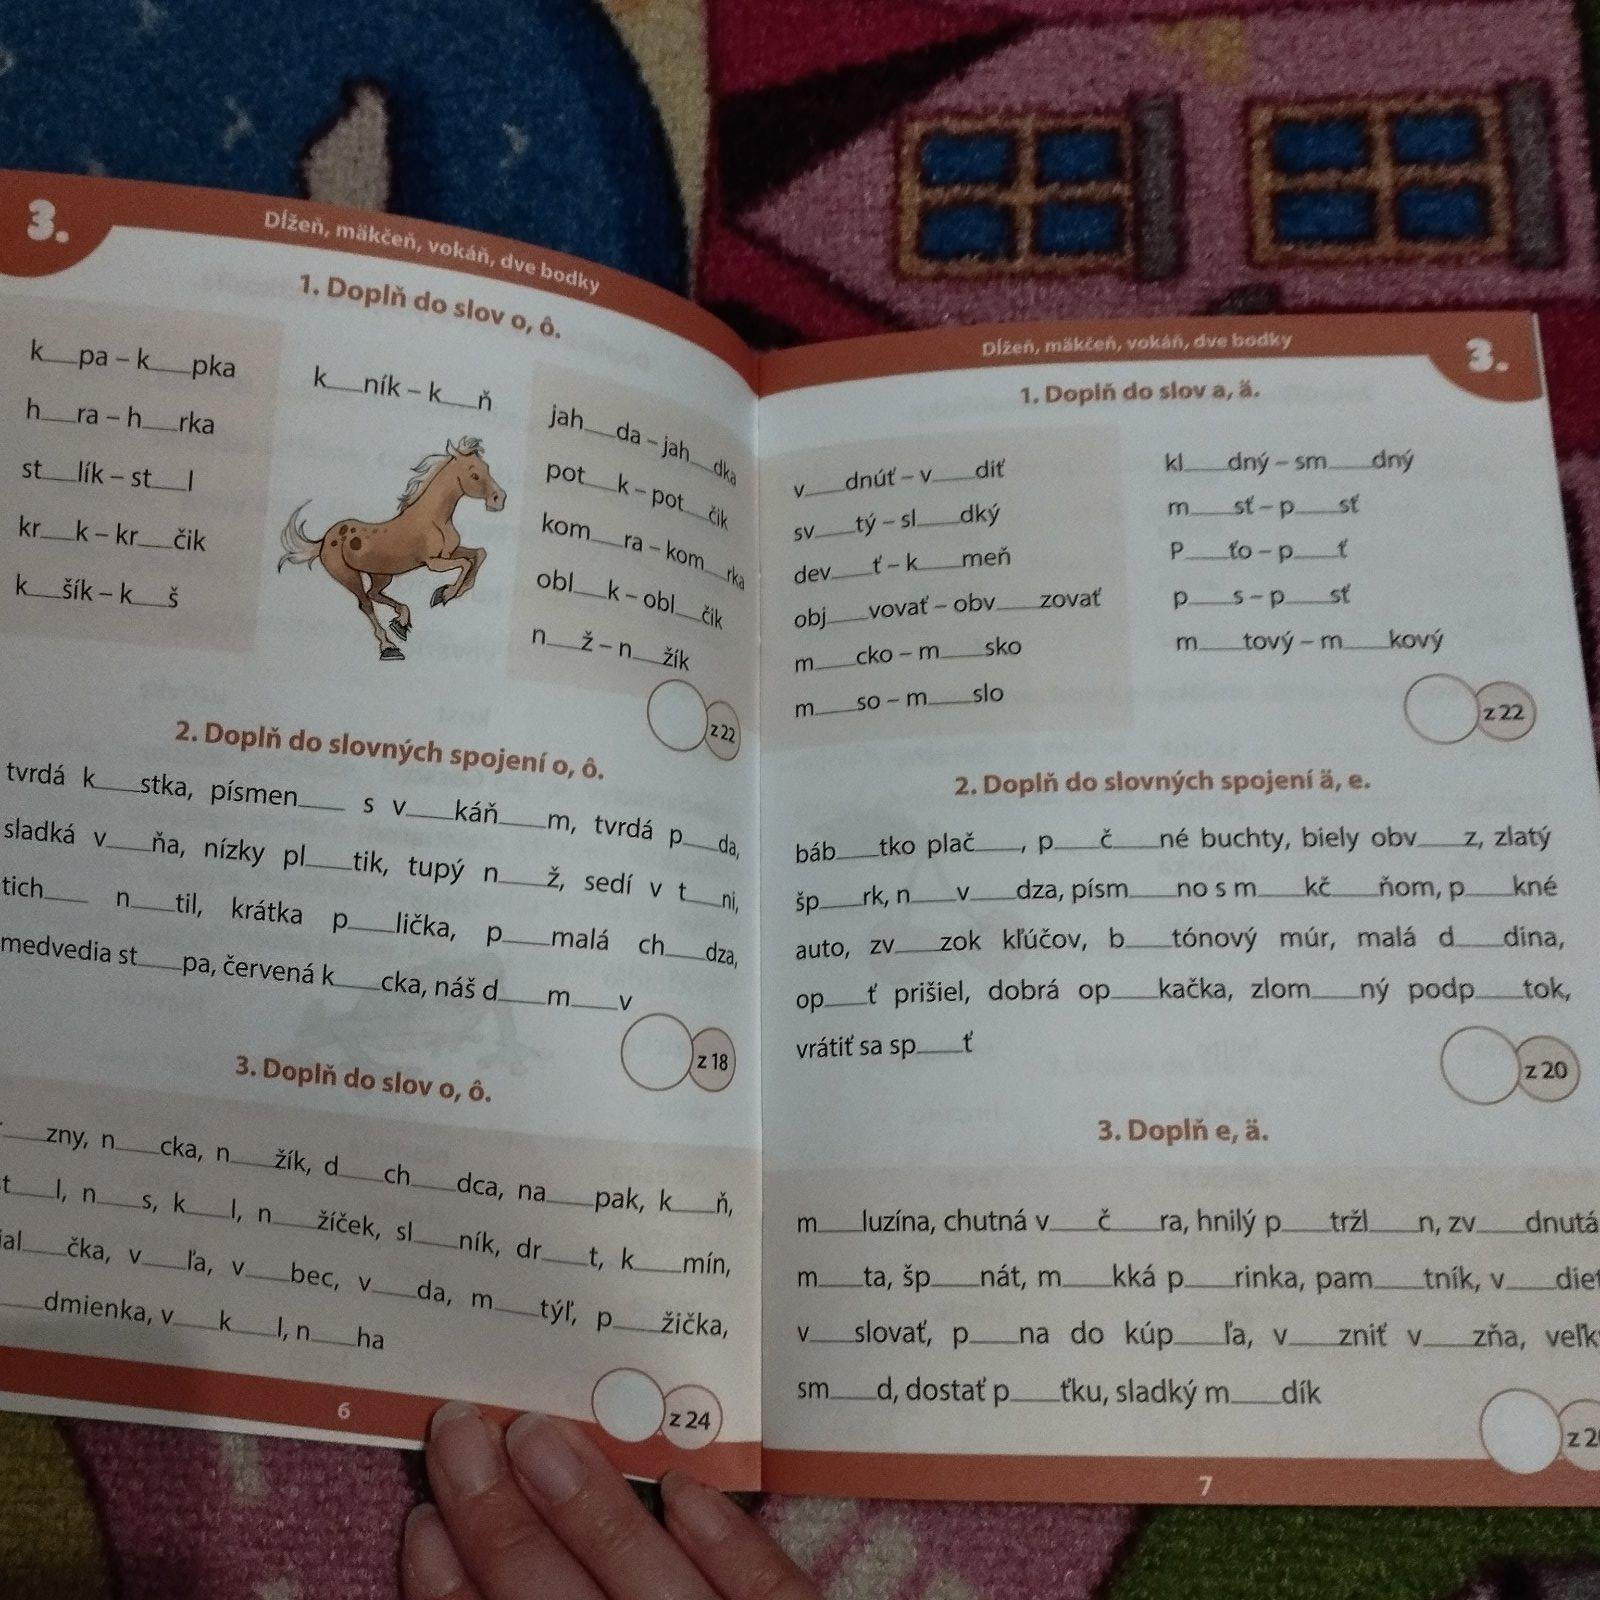 3.
Dĺžeň, mäkčeň, vokáň, dve bodky
1. Doplň do slov o, ô.
k___pa – k___pka
h___ra – h___rka
st___lík – st___l
kr___k – kr___čik
k___šík – k___š
k___ník – k___ň
jah___da – jah___dka
pot___k – pot___čik
kom___ra – kom___rka
obl___k – obl___čik
n___ž – n___žík
z 22
2. Doplň do slovných spojení o, ô.
tvrdá k___stka, písmen___ s v___káň___m, tvrdá p___da,
sladká v___ňa, nízky pl___tik, tupý n___ž, sedí v t___ni,
tich___ n___til, krátka p___lička, p___malá ch___dza,
medvedia st___pa, červená k___cka, náš d___m___v
z 18
3. Doplň do slov o, ô.
___zny, n___cka, n___žík, d___ch___dca, na___pak, k___ň,
t___l, n___s, k___l, n___žíček, sl___ník, dr___t, k___mín,
ial___čka, v___ľa, v___bec, v___da, m___týľ, p___žička,
___dmienka, v___k___l, n___ha
z 24
6
Dĺžeň, mäkčeň, vokáň, dve bodky
3.
1. Doplň do slov a, ä.
v___dnúť – v___diť
sv___tý – sl___dký
dev___ť – k___meň
obj___vovať – obv___zovať
m___cko – m___sko
m___so – m___slo
kl___dný – sm___dný
m___sť – p___sť
P___ťo – p___ť
p___s – p___sť
m___tový – m___kový
z 22
2. Doplň do slovných spojení ä, e.
báb___tko plač___, p___č___né buchty, biely obv___z, zlatý
šp___rk, n___v___dza, písm___no s m___kč___ňom, p___kné
auto, zv___zok kľúčov, b___tónový múr, malá d___dina,
op___ť prišiel, dobrá op___kačka, zlom___ný podp___tok,
vrátiť sa sp___ť
z 20
3. Doplň e, ä.
m___luzína, chutná v___č___ra, hnilý p___tržl___n, zv___dnutá
m___ta, šp___nát, m___kká p___rinka, pam___tník, v___dieť
v___slovať, p___na do kúp___ľa, v___zniť v___zňa, veľk
sm___d, dostať p___ťku, sladký m___dík
z 2
7